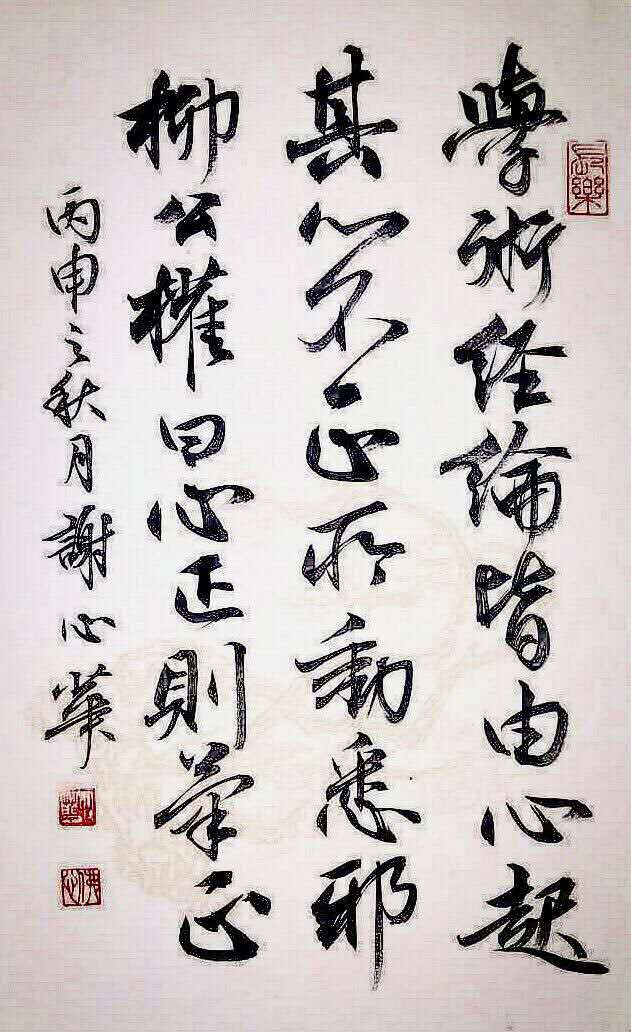 學術经綸皆由心起
其心不正所動悉邪
柳公權曰心正則筆正
丙申之秋月謝心華
長樂